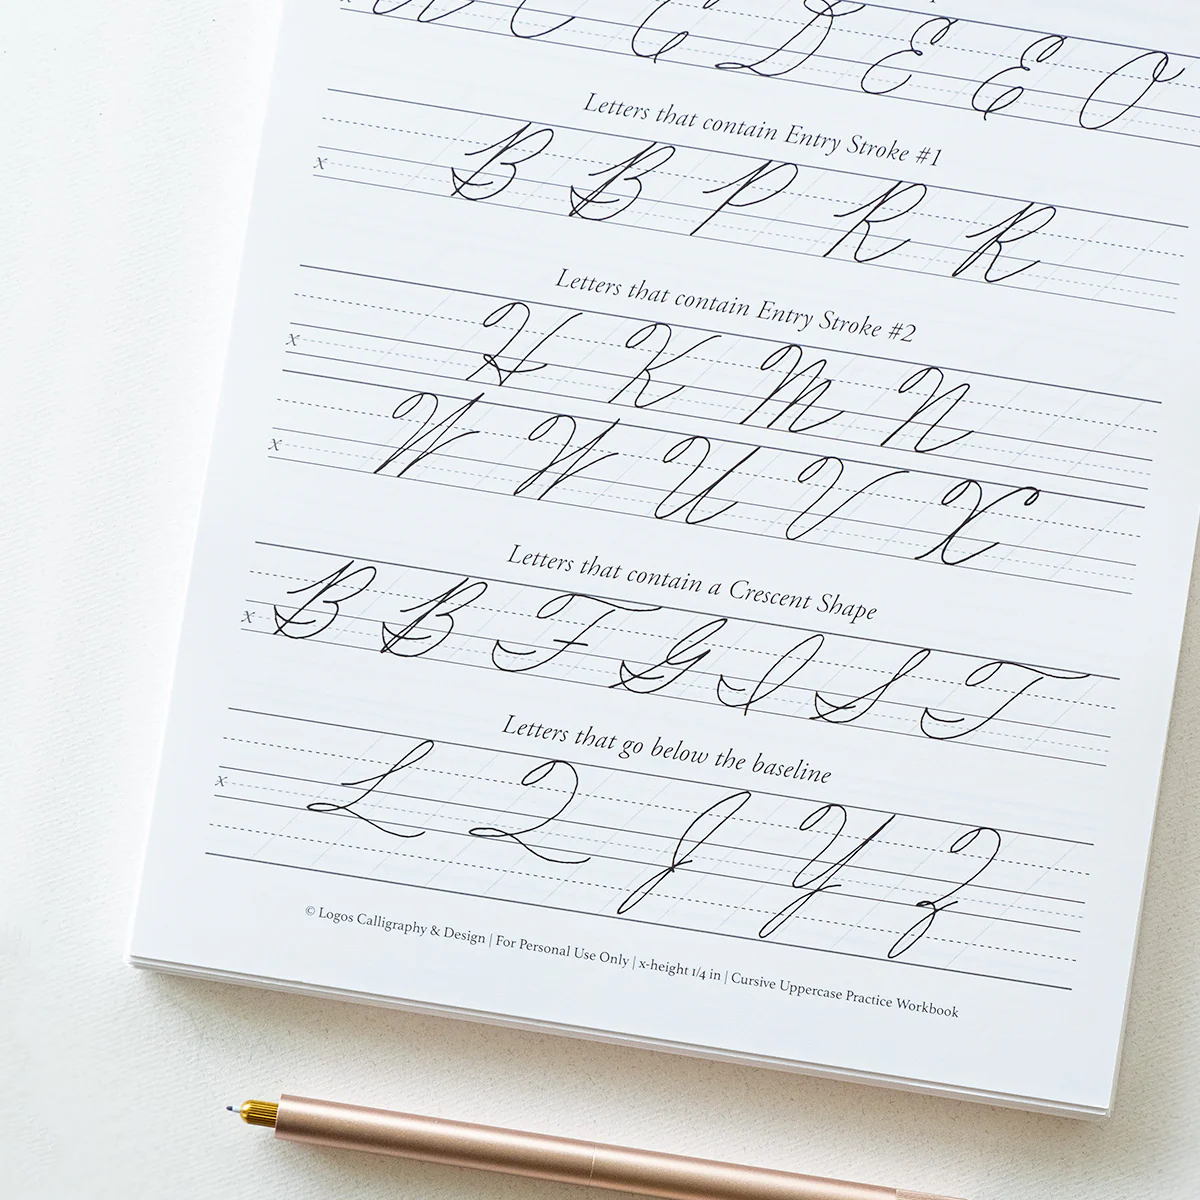 C D E E O
Letters that contain Entry Stroke #1
x B B P R R
Letters that contain Entry Stroke #2
x H K M N
x W W U V X
Letters that contain a Crescent Shape
x B B F G I S T
Letters that go below the baseline
x L Q J Y Z
© Logos Calligraphy & Design | For Personal Use Only | x-height 1/4 in | Cursive Uppercase Practice Workbook